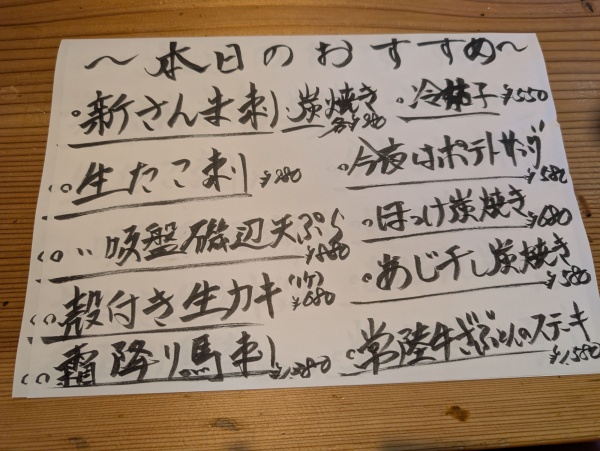 〜本日のおすすめ〜
新さんま刺
炭焼き
各
生たこ刺
吸盤磯辺天ぷら
殻付き生カキ
(1ケ)
¥680
霜降り馬刺
冷柿子 ¥550
今夜はポテトサラダ
¥580
ほっけ炭焼き
あじ干し炭焼き
¥580
常陸牛ぎゅとんのステーキ
¥1,580